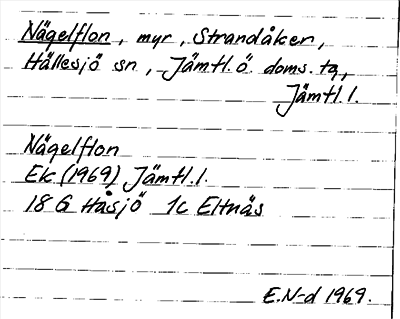 Nägelflon, myr, Strandåker,
Hällesjö sn, Jämtl. ö doms. tg,
Jämtl. l.
Nägelflon
Ek (1969) Jämtl. l.
18 G Håsjö 1c Eltnäs
E.N-d 1969.